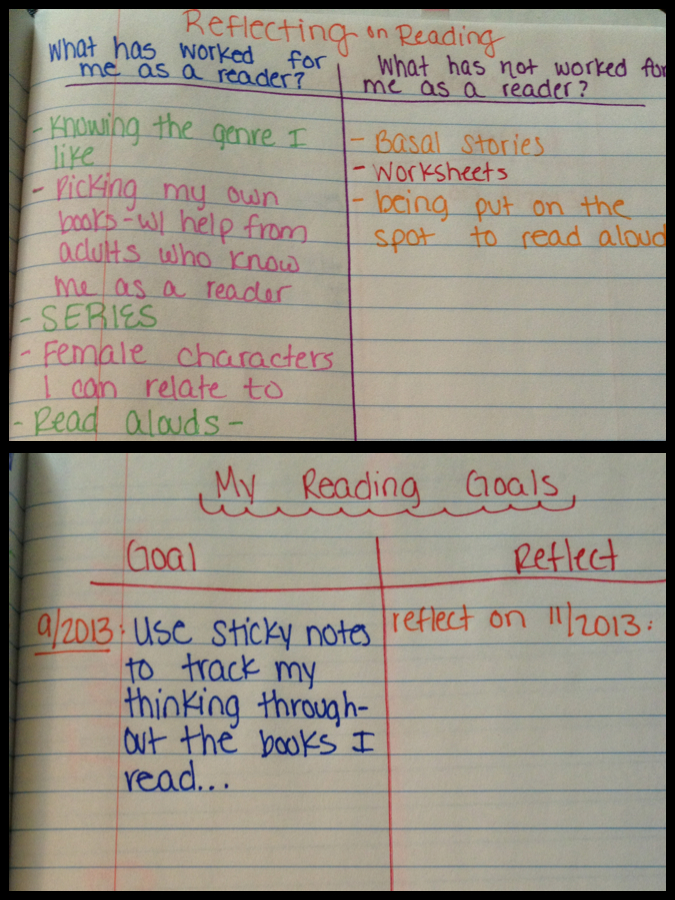 Reflecting on Reading
What has worked for
me as a reader?
- Knowing the genre I
like
- Picking my own
books - w/ help from
adults who know
me as a reader
- SERIES
- Female characters
I can relate to
- Read alouds -
What has not worked for
me as a reader?
- Basal stories
- Worksheets
- being put on the
spot to read aloud
My Reading Goals
Goal
9/2013: Use sticky notes
to track my
thinking through-
out the books I
read...
Reflect
reflect on 11/2013: